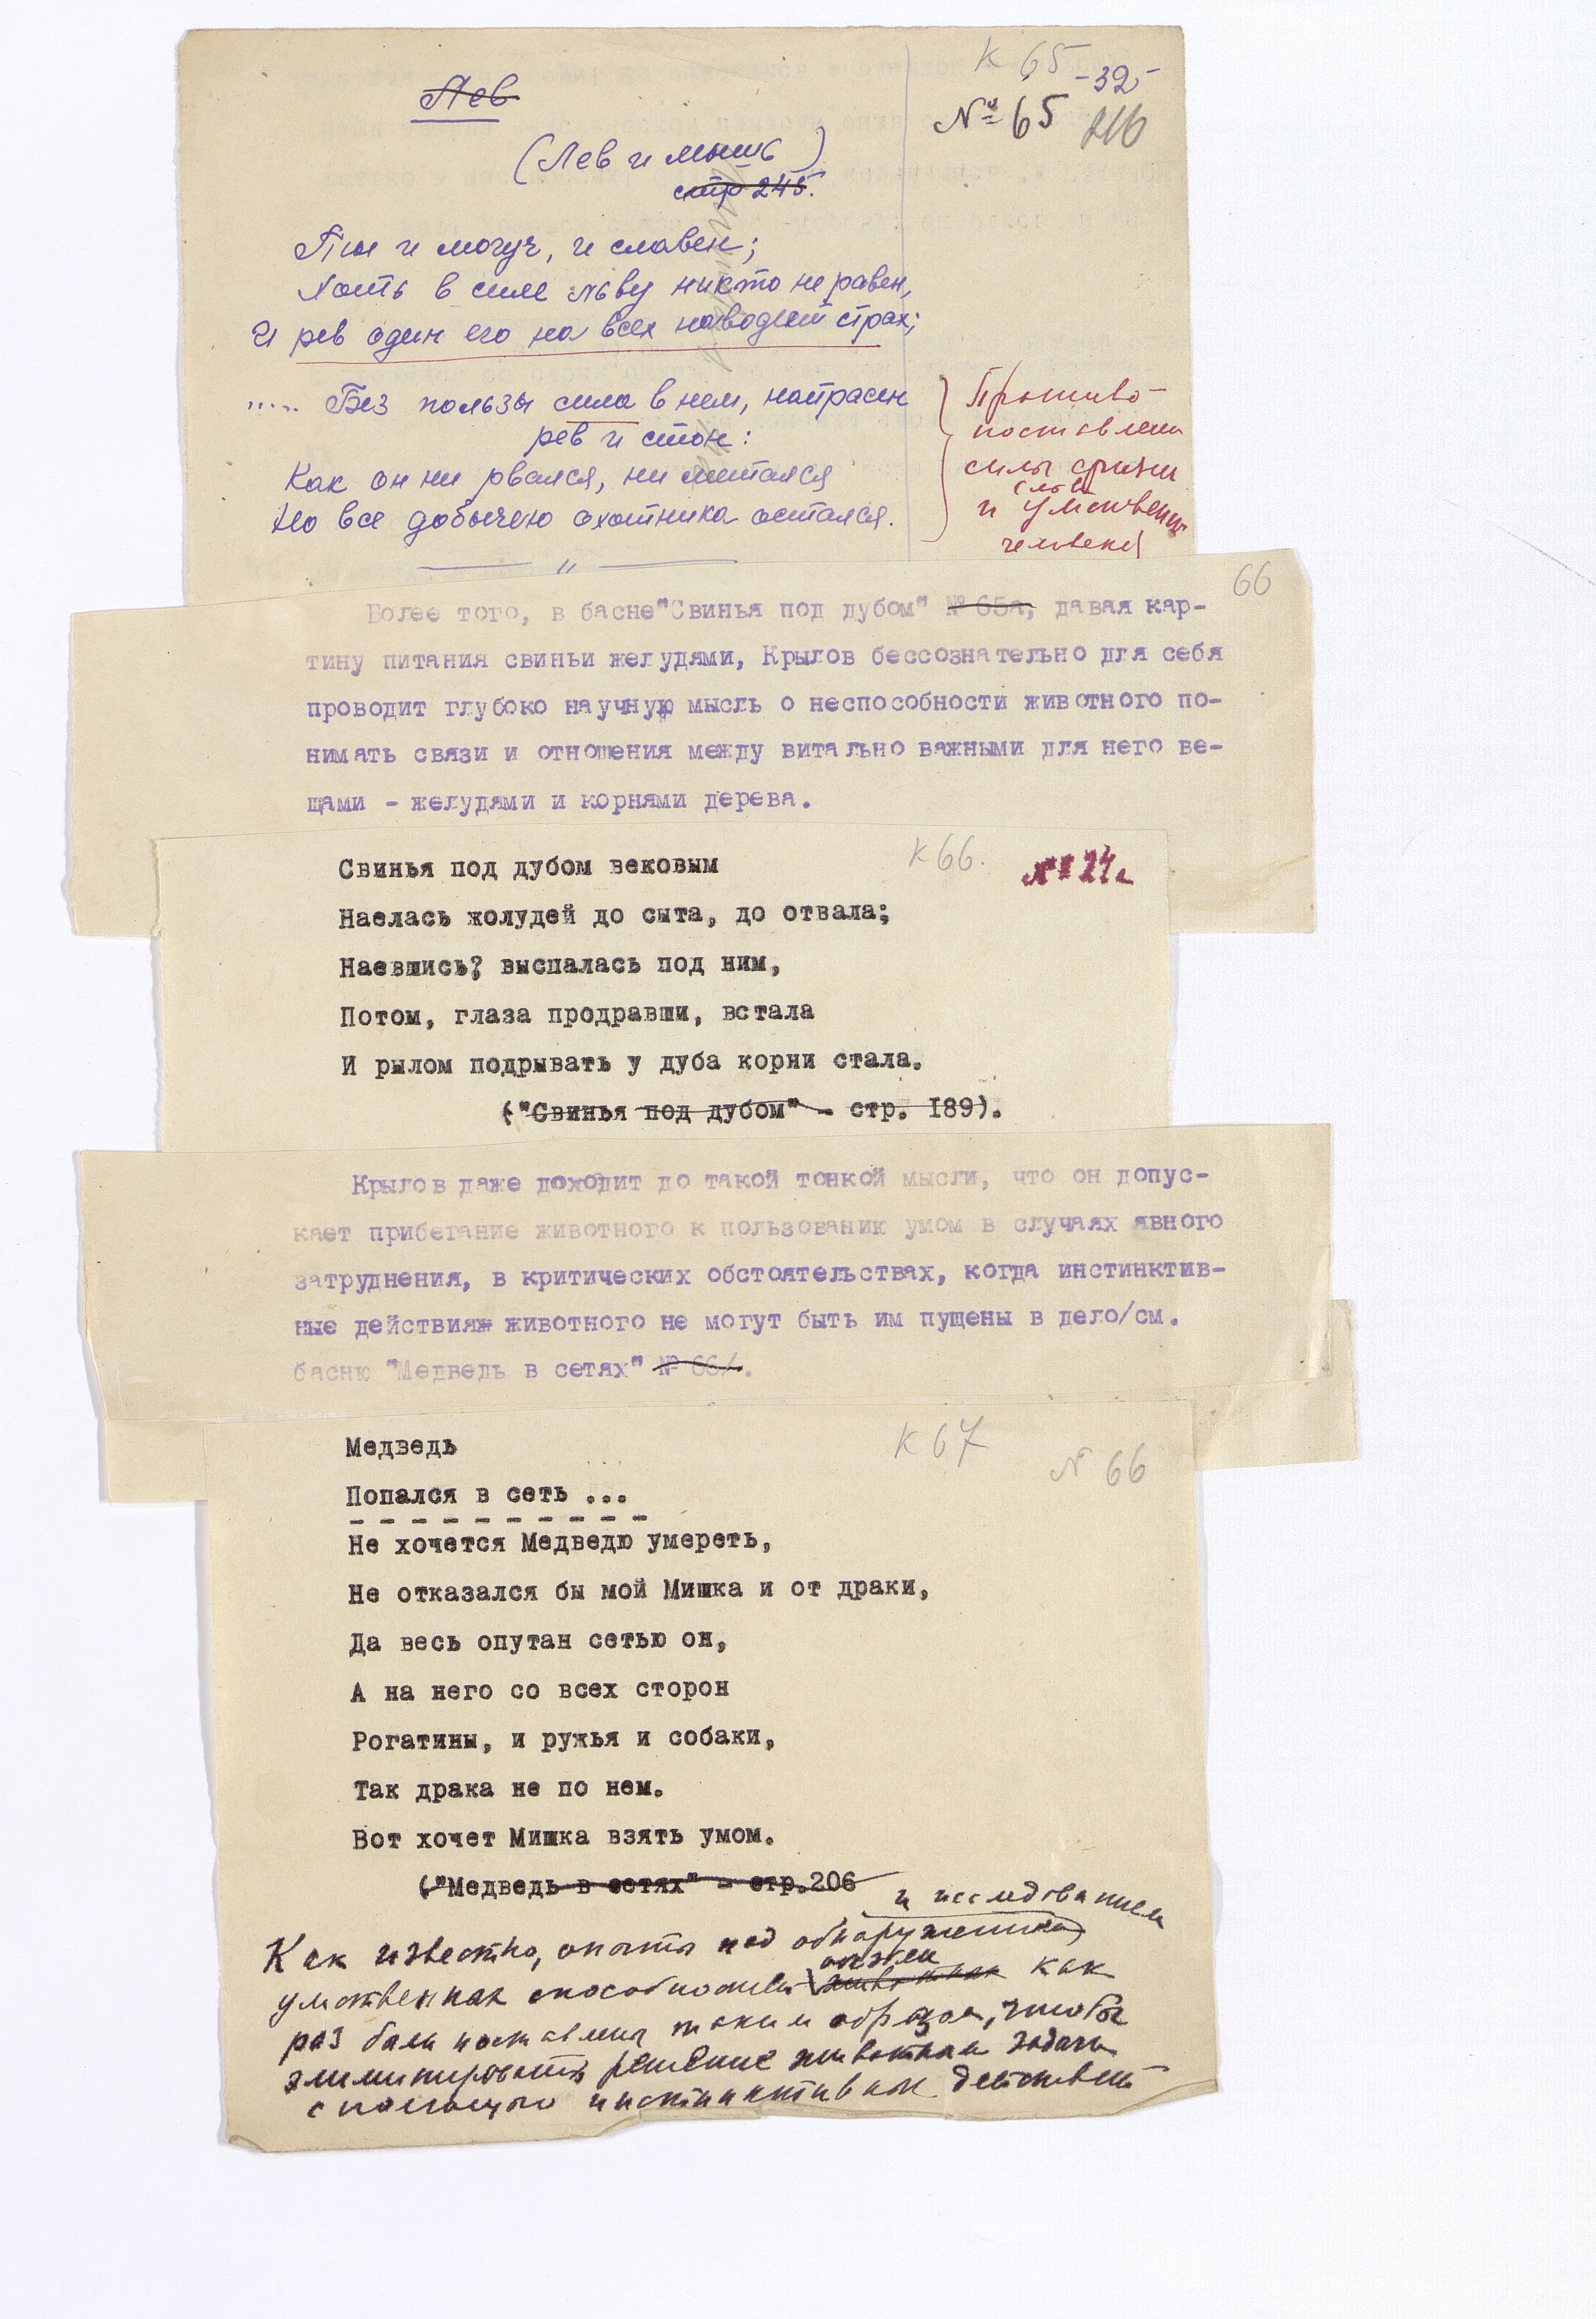 К 65 -32-
Лев
№ 65 216
(Лев и мышь)
стр 245.
Ты и могуч, и славен;
Хоть в силе льву никто не равен,
И рев один его на всех наводит страх;
..... Без пользы сила в нем, напрасен
рев и стон:
Как он ни рвался, ни метался
Но все добычею охотника остался.
Противо-
поставлени
силы физич
льва
и умственн
человека
"
66
Более того, в басне "Свинья под дубом" № 65а, давая кар-
тину питания свиньи желудями, Крылов бессознательно для себя
проводит глубоко научную мысль о неспособности животного по-
нимать связи и отношения между витально важными для него ве-
щами - желудями и корнями дерева.
К 66.
№ 24а
Свинья под дубом вековым
Наелась жолудей до сыта, до отвала;
Наевшись? выспалась под ним,
Потом, глаза продравши, встала
И рылом подрывать у дуба корни стала.
("Свинья под дубом" - стр. 189).
Крылов даже доходит до такой тонкой мысли, что он допус-
кает прибегание животного к пользованик умом в случаях явного
затруднения, в критических обстоятельствах, когда инстинктив-
ные действияж животного не могут быть им пущены в дело/см.
басню "Медведь в сетях" № 66/.
К 67
№ 66
Медведь
Попался в сеть ...
- - - - - - - - - -
Не хочется Медведю умереть,
Не отказался бы мой Мишка и от драки,
Да весь опутан сетью он,
А на него со всех сторон
Рогатины, и ружья и собаки,
Так драка не по нем.
Вот хочет Мишка взять умом.
("Медведь в сетях" - стр.206
и исследованием
Как известно, опыты над обнаружением
умственных способностей животных как
раз были поставлены таким образом, чтобы
элиминировать решение животным задачи
с помощью инстинктивных действий